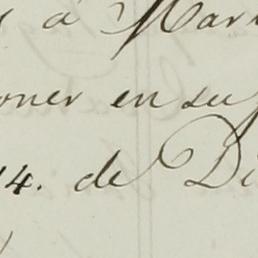 á Mar
oner en su
14. de Di